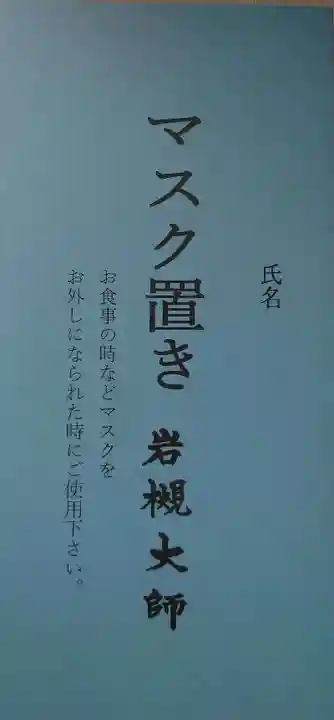 氏名
マスク置き 岩槻大師
お食事の時などマスクを
お外しになられた時にご使用下さい。